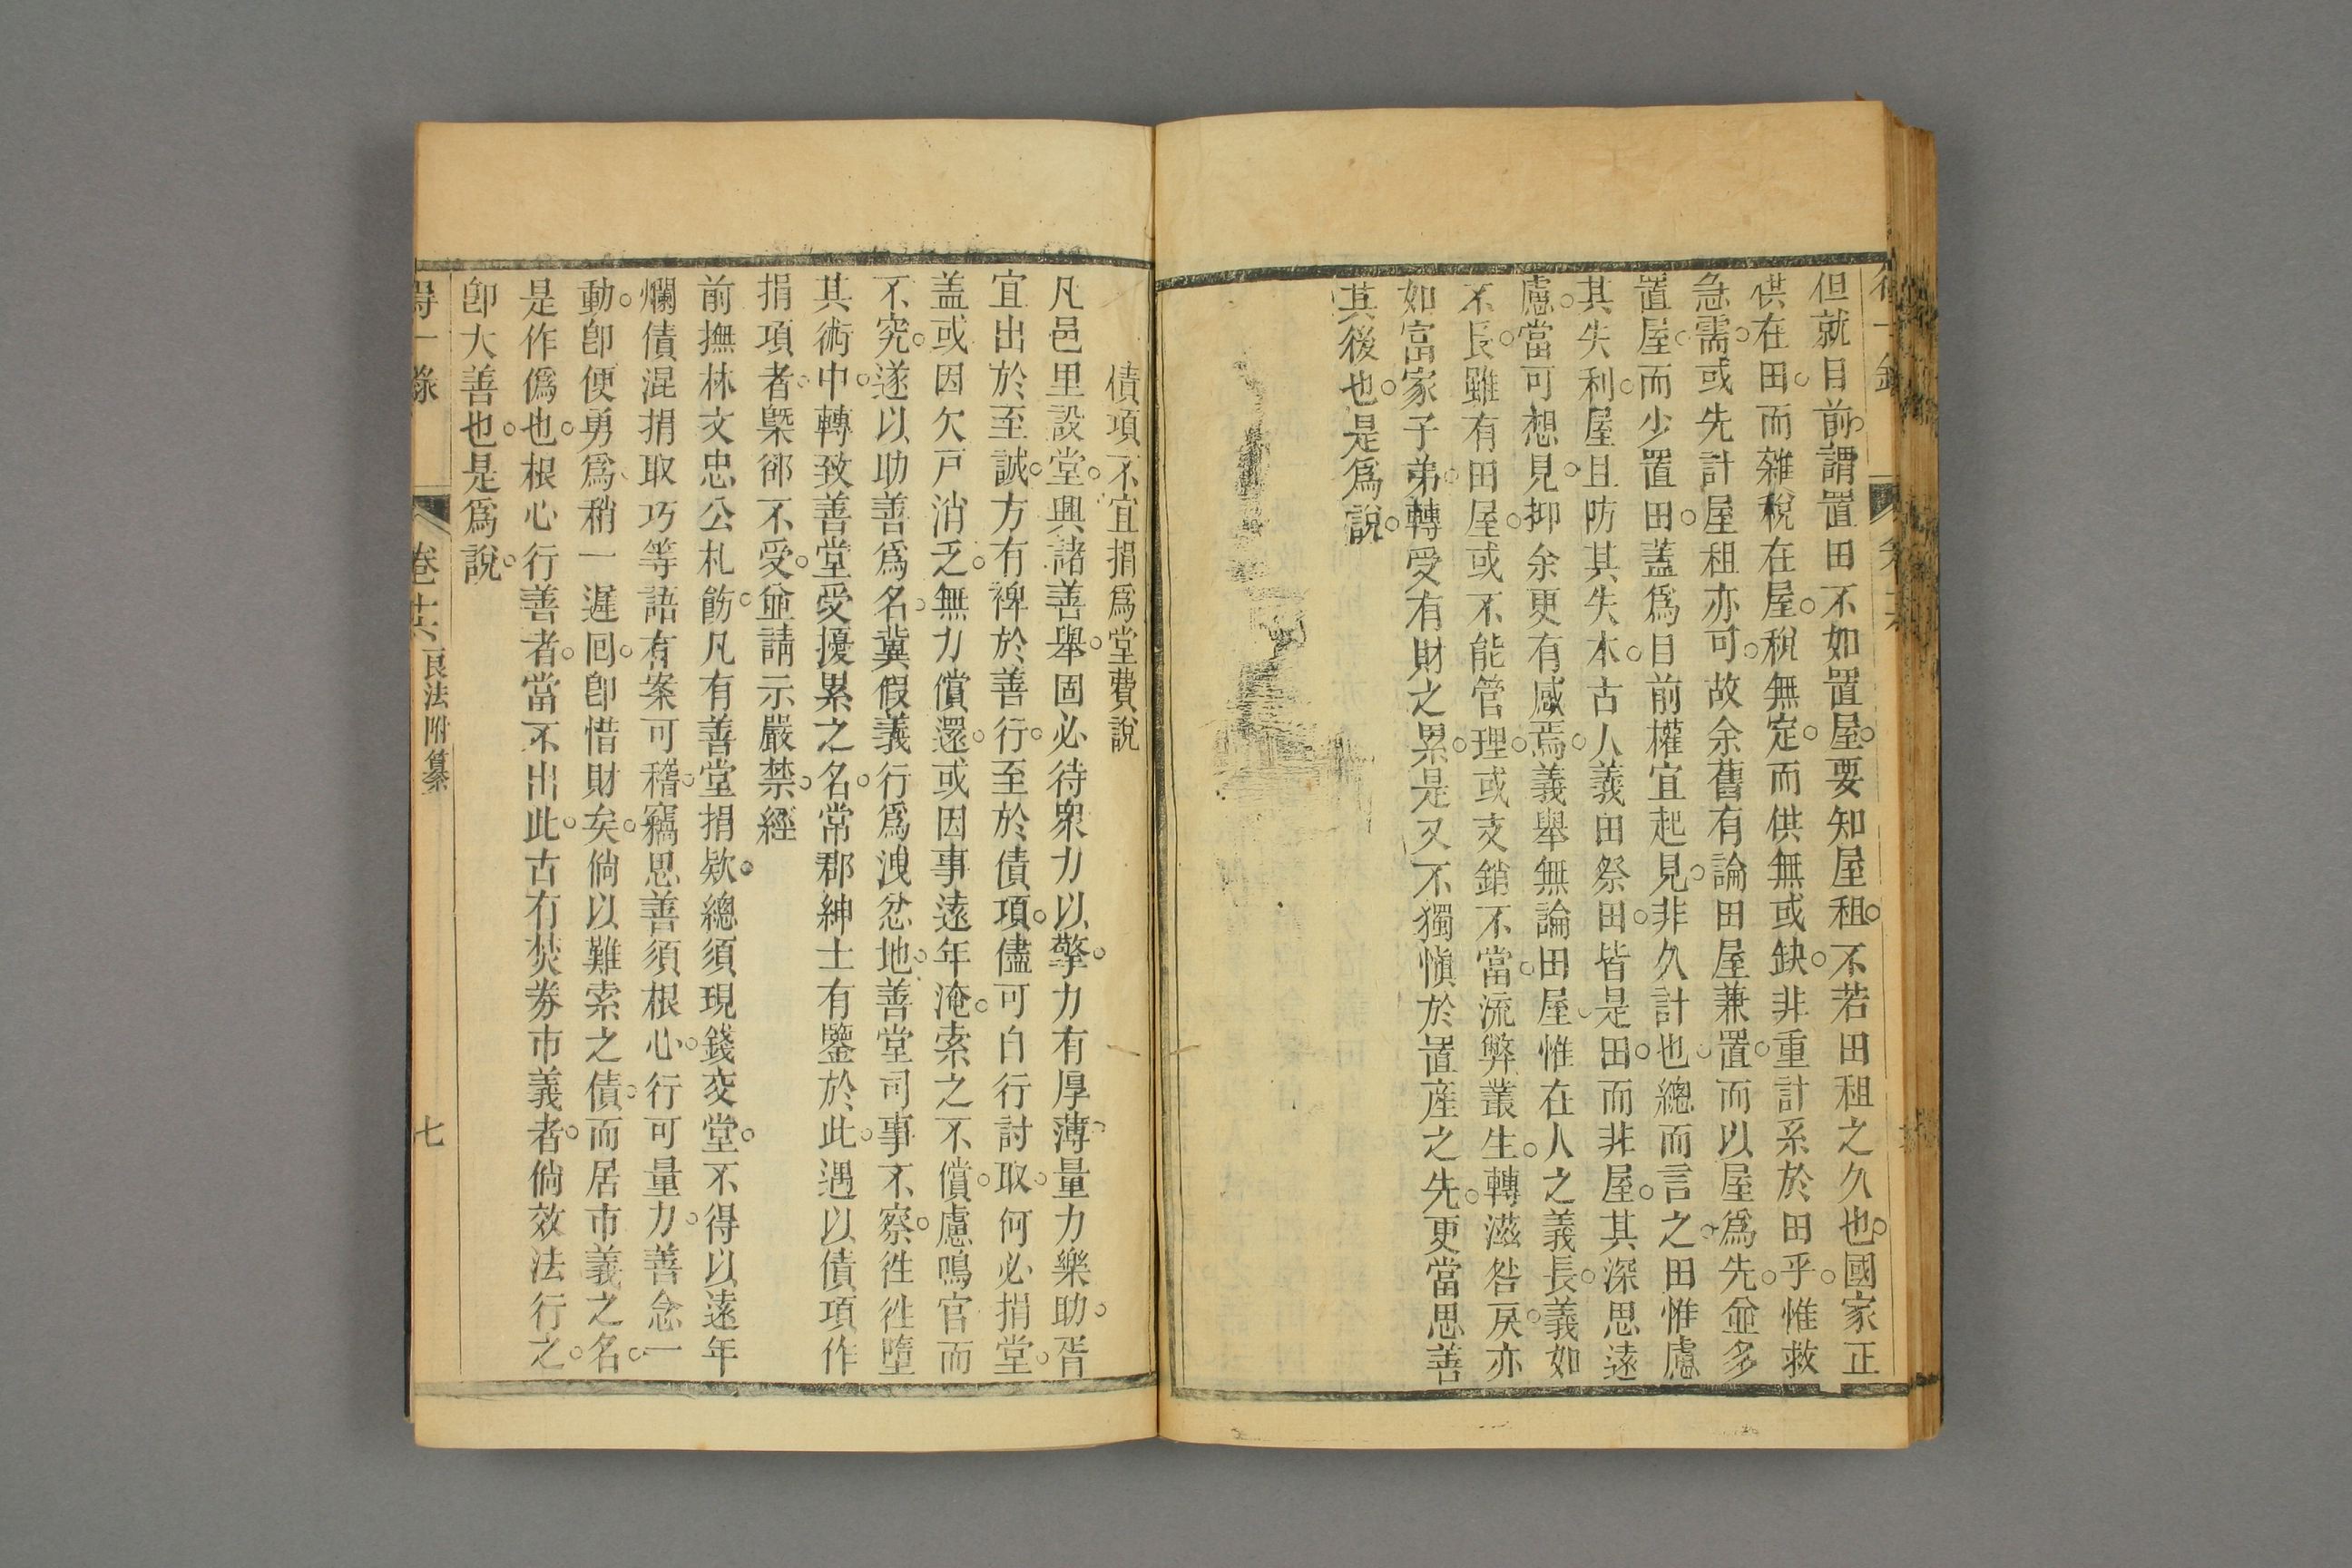 但就目前謂置田不如置屋要知屋租不若田租之久也國家正
供在田而雜稅在屋稅無定而供無或缺非重計系於田乎惟救
急需或先計屋租亦可故余舊有論田屋兼置而以屋爲先並多
置屋而少置田蓋爲目前權宜起見非久計也總而言之田惟慮
其失利屋且防其失本古人義田祭田皆是田而非屋其深思遠
慮當可想見抑余更有感焉義舉無論田屋惟在人之義長義如
不長雖有田屋或不能管理或支銷不當流弊叢生轉滋咎戾亦
如富家子弟轉受有財之累是又不獨愼於置産之先更當思善
其後也是爲說
債項不宜捐爲堂費說
凡邑里設堂興諸善舉固必待衆力以擎力有厚薄量力樂助胥
宜出於至誠方有裨於善行至於債項儘可白行討取何必捐堂
盖或因欠戸消乏無力償還或因事遠年淹索之不償慮鳴官而
不究遂以助善爲名冀假義行爲洩忿地善堂司事不察徃徃墮
其術中轉致善堂受擾累之名常郡紳士有鑒於此遇以債項作
捐項者槩郤不受並請示嚴禁經
前撫林文忠公札飭凡有善堂捐欵總須現錢交堂不得以遠年
爛債混捐取巧等語有案可稽竊思善須根心行可量力善念一
動卽便勇爲稍一遲囘卽惜財矣倘以難索之債而居市義之名
是作僞也根心行善者當不出此古有焚券市義者倘效法行之
卽大善也是爲說
得一錄
卷十六
良法附纂
七